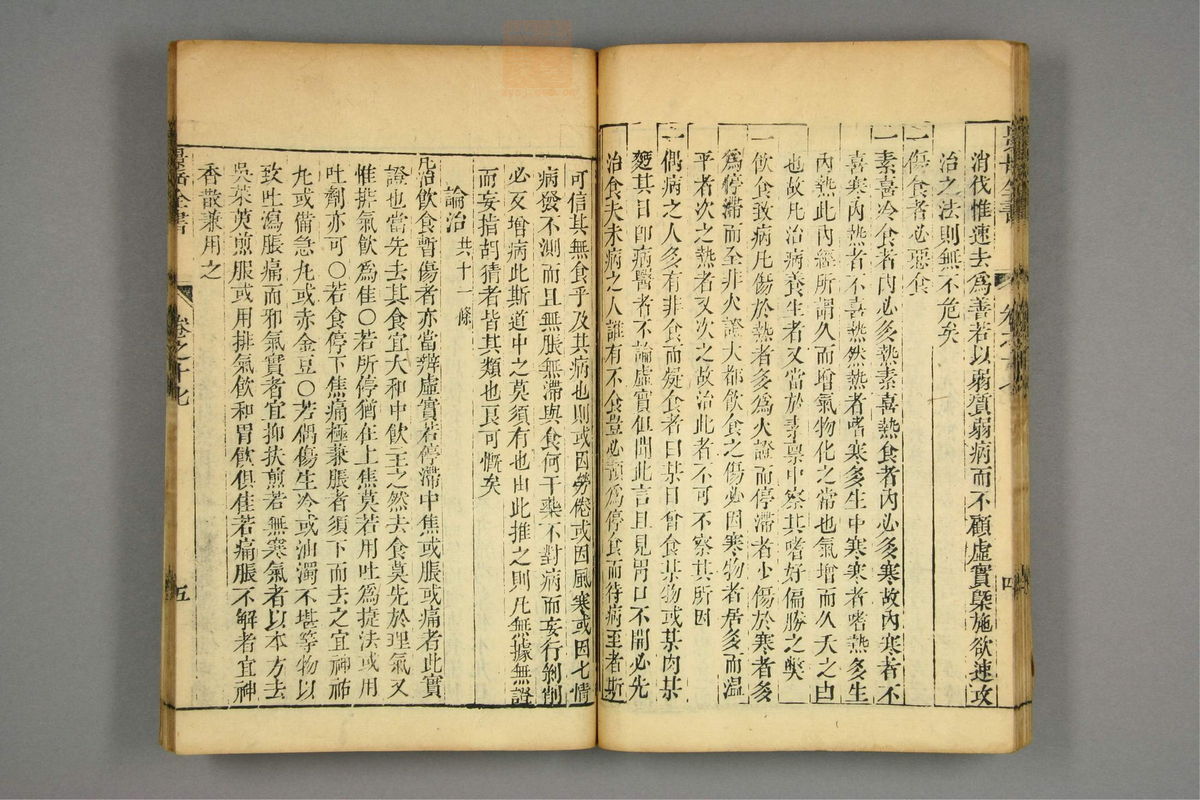 消伐惟速去爲善若以弱質弱病而不顧虛實槩施欲速攻
治之法則無不危矣
一傷食者必惡食
一素喜冷食者內必多熱素喜熱食者內必多寒故內寒者不
喜寒內熱者不喜熱然熱者嗜寒多生中寒寒者嗜熱多生
內熱此內經所謂久而增氣物化之常也氣增而久夭之由
也故凡治病養生者又當於素禀中察其嗜好偏勝之弊
一飲食致病凡傷於熱者多爲火證而停滯者少傷於寒者多
爲停滯而全非火證大都飲食之傷必因寒物者居多而溫
平者次之熱者又次之故治此者不可不察其所因
一偶病之人多有非食而疑食者曰某日曾食某物或某肉某
麪其日卽病醫者不論虛實但聞此言且見胃口不開必先
治食夫未病之人誰有不食豈必預爲停食而待病至者斯
四
可信其無食乎及其病也則或因勞倦或因風寒或因七情
病發不測而且無脹無滯與食何干藥不對病而妄行剝削
必反增病此斯道中之莫須有也由此推之則凡無據無證
而妄指胡猜者皆其類也良可慨矣
論治 共十一條
凡治飲食暫傷者亦當辨虛實若停滯中焦或脹或痛者此實
證也當先去其食宜大和中飲主之然去食莫先於理氣又
惟排氣飲爲佳○若所停猶在上焦莫若用吐爲捷法或用
吐劑亦可○若食停下焦痛極兼脹者須下而去之宜神祐
丸或備急丸或赤金豆○若偶傷生冷或油濁不堪等物以
致吐瀉脹痛而邪氣實者宜抑扶煎若無寒氣者以本方去
吳茱萸煎服或用排氣飲和胃飲俱佳若痛脹不解者宜神
香散兼用之
景岳全書
卷之十七
五